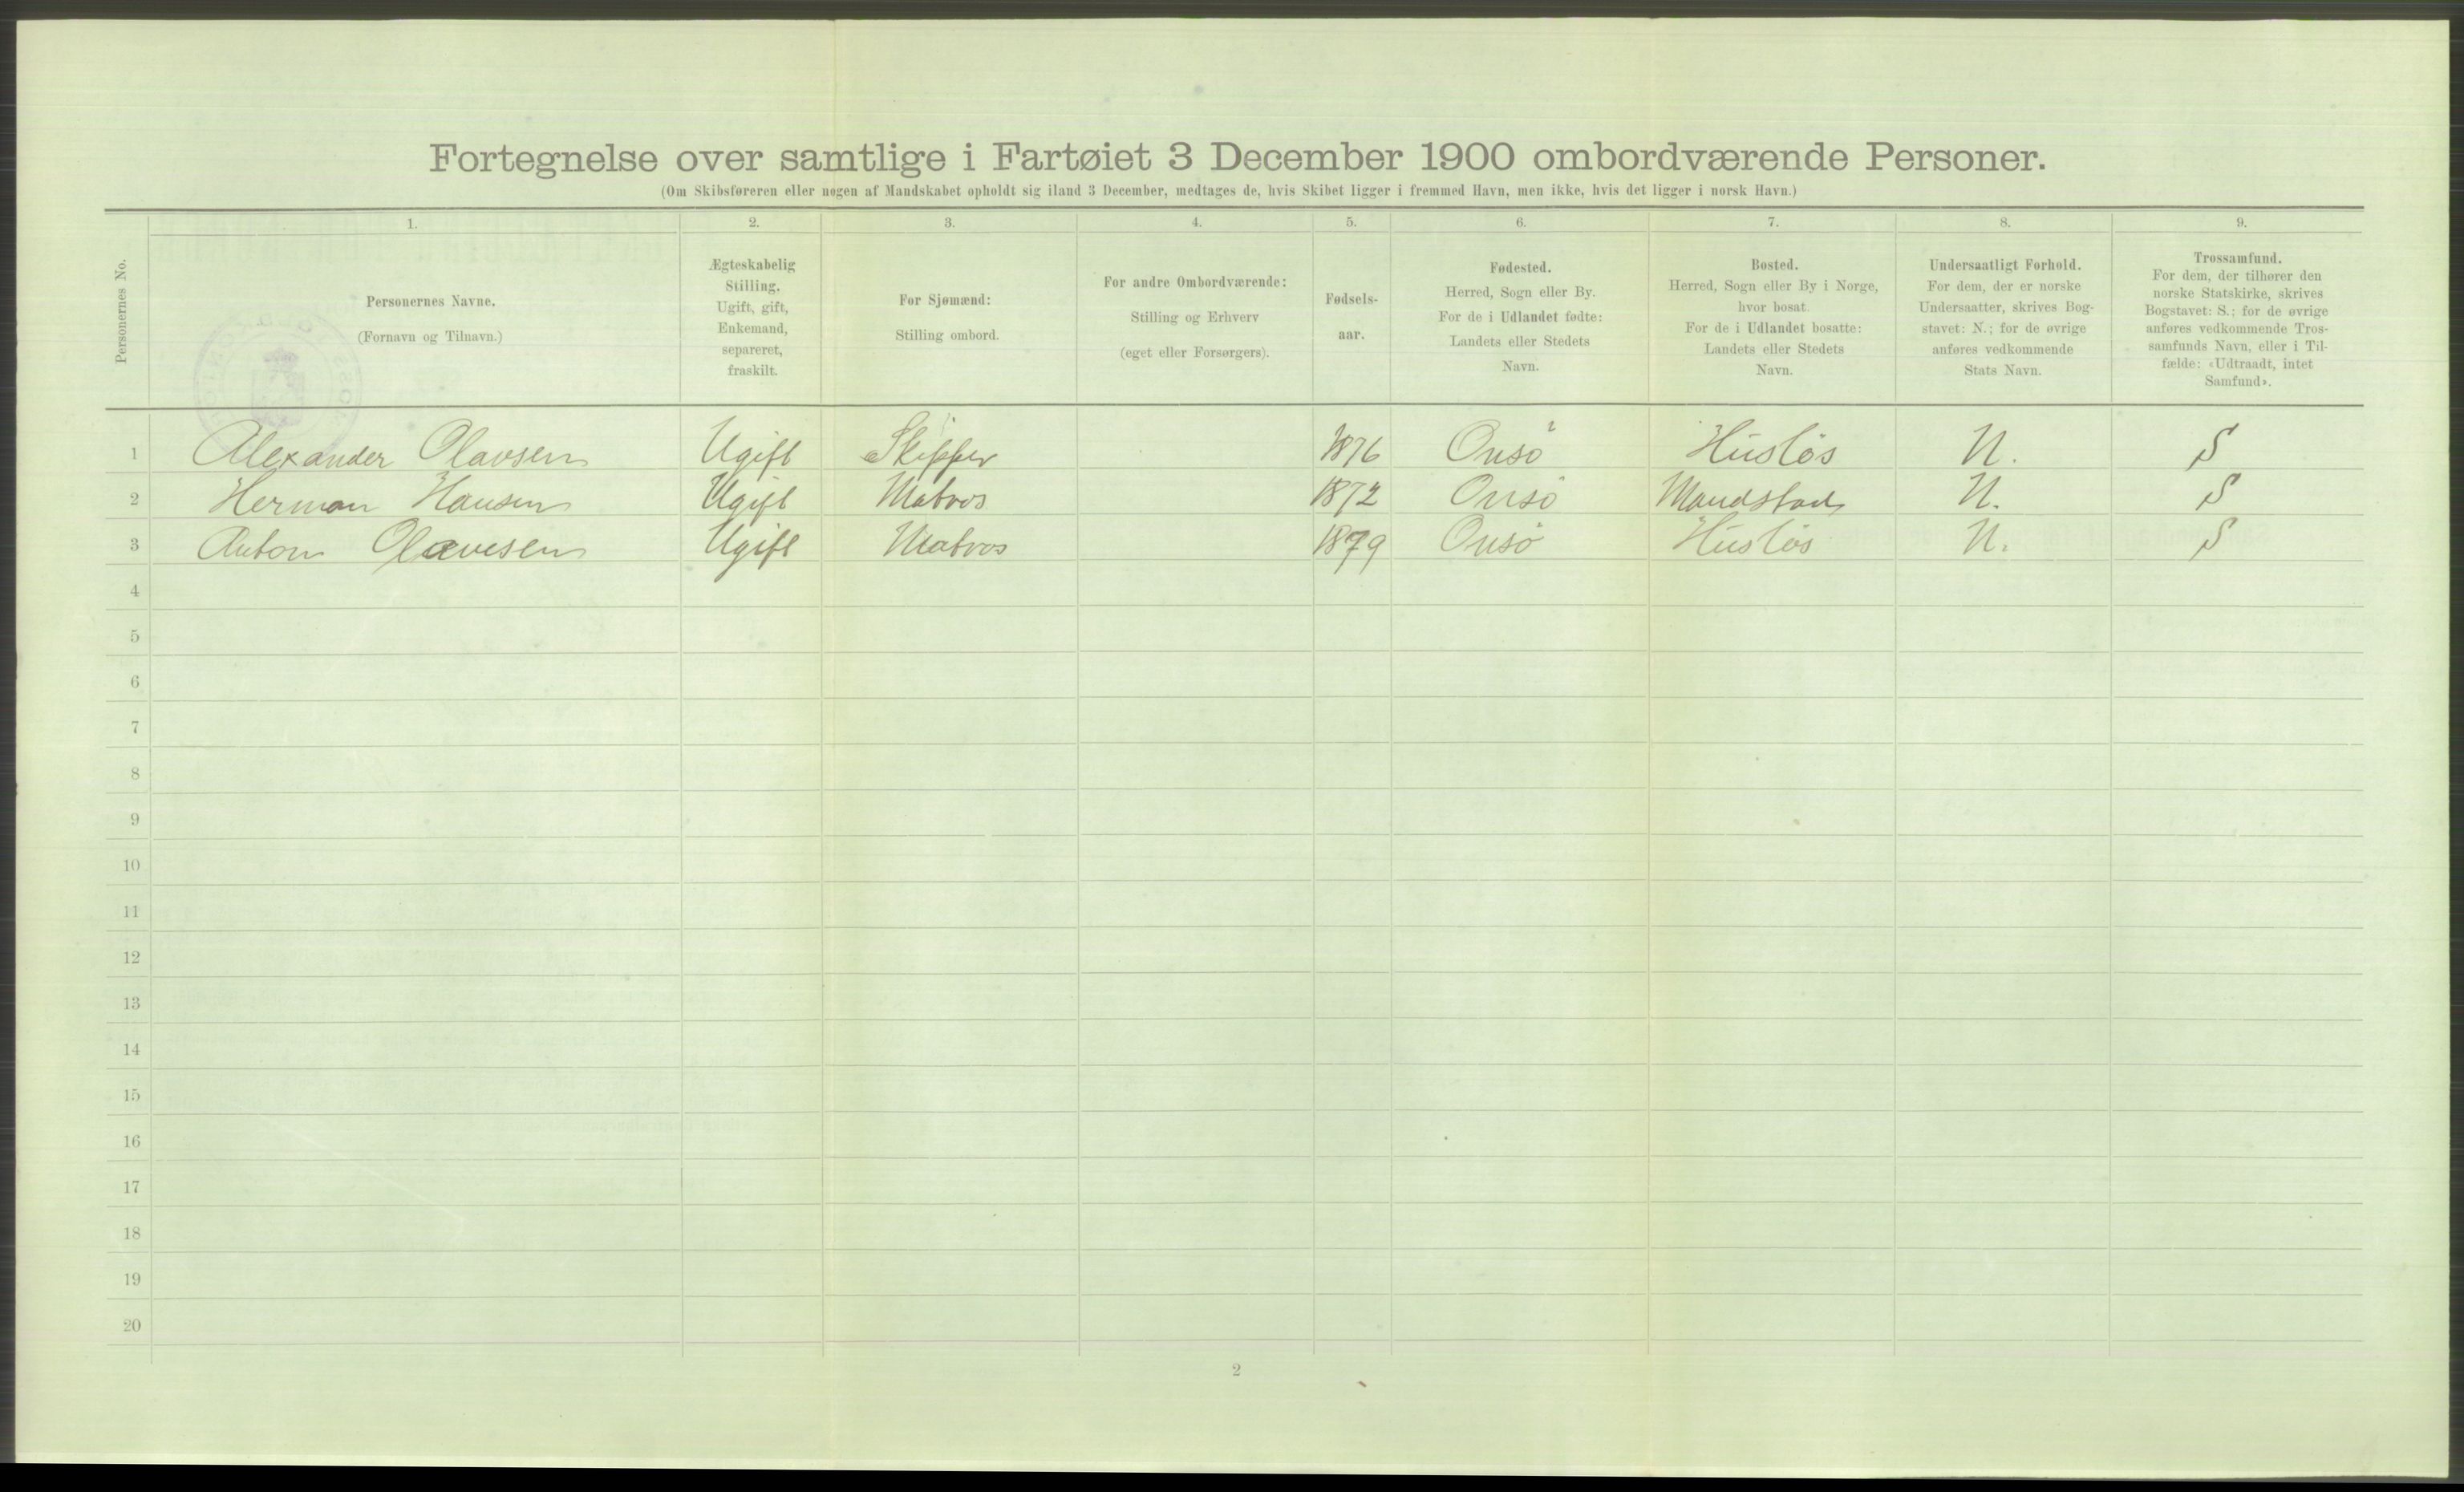 Fortegnelse over samtlige i Fartøiet 3 December 1900 ombordværende Personer.
(Om Skibsføreren eller nogen af Mandskabet opholdt sig iland 3 December, medtages de, hvis Skibet ligger i fremmed Havn, men ikke, hvis det ligger i norsk Havn.)
Personernes No.
1.
Personernes Navne.
(Fornavn og Tilnavn.)
2.
Ægteskabelig
Stilling.
Ugift, gift,
Enkemand,
separeret,
fraskilt.
3.
For Sjømænd:
Stilling ombord.
4.
For andre Ombordværende:
Stilling og Erhverv
(eget eller Forsørgers).
5.
Fødsels-
aar.
6.
Fødested.
Herred, Sogn eller By.
For de i Udlandet fødte:
Landets eller Stedets
Navn.
7.
Bosted.
Herred, Sogn eller By i Norge,
hvor bosat.
For de i Udlandet bosatte:
Landets eller Stedets
Navn.
8.
Undersaatligt Forhold.
For dem, der er norske
Undersaatter, skrives Bog-
stavet: N.; for de øvrige
anføres vedkommende
Stats Navn.
9.
Trossamfund.
For dem, der tilhører den
norske Statskirke, skrives
Bogstavet: S.; for de øvrige
anføres vedkommende Tros-
samfunds Navn, eller i Til-
fælde: «Udtraadt, intet
Samfund».
1 Alexander Olavsen Ugift Skipper 1876 Onsö Huslös N. S
2 Herman Hansen Ugift Matros 1872 Onsö N. S
3 Anton Olavesen Ugift Matros 1879 Onsö Huslös N. S
4
5
6
7
8
9
10
11
12
13
14
15
16
17
18
19
20
2